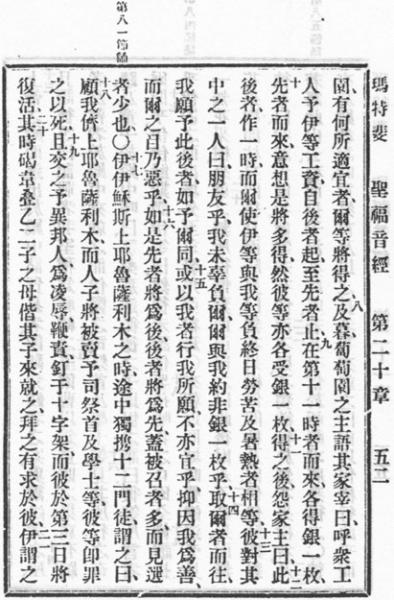 瑪特斐 聖福音經 第二十章 五二
園有何所適宜者爾等將得之、及暮葡萄園之主語其家宰曰呼衆工
人予伊等工資自後者起至先者止、在第十一時者而來各得銀一枚、
先者而來意想是將多得然彼等亦各受銀一枚、得之後怨家主曰此
後者作一時而爾使伊等與我等負終日勞苦及暑熱者相等、彼對其
中之一人曰朋友乎、我未辜負爾爾與我約非銀一枚乎、取爾者而往
我願予此後者如予爾同、或以我者行我所願不亦宜乎、抑因我爲善
而爾之目乃惡乎、如是先者將爲後後者將爲先蓋被召者多而見選
者少也〇伊伊穌斯上耶魯薩利木之時途中獨攜十二門徒謂之曰
顧我儕上耶魯薩利木而人子將被賣予司祭首及學士等彼等卽罪
之以死、且交之予異邦人爲凌辱鞭責釘于十字架而彼於第三日將
復活、其時碣韋叠乙二子之母偕其子來就之拜之有求於彼、伊謂之
八
九
十
十一
十二
十三
十四
十五
十六
十七
十八
十九
二十
二一
第八一節